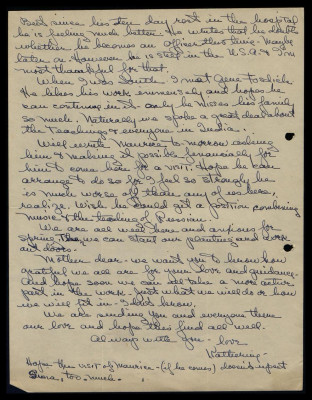 Both since his ten day rest in the hospital
he is feeling much better. He writes that he doubts
whether he becomes an officer this time - maybe
later on. However he is still in the U.S.A. & I'm
most thankful for that.
When I was South - I met Gene Foslich
He likes his work immensely and hopes he
can continue in it - only he misses his family
so much. Naturally we spoke a great deal about
the Teachings & everyone in India.
Will write Maurice to-morrow asking
him & making it possible financially for
him to come here for a visit. Hope he can
arrange to do so for I feel so strongly he
is much worse off than any of us here,
realize. Wish he could get a position combining
music & the teaching of Russian.
We are all well here and anxious for
spring. Then we can start our planting and work
out doors.
Mother dear - we want you to know how
grateful we all are for your love and guidance.
And hope soon we can all take a more active
part in the work. Just what we will do or how
we will fit in - I don't know.
We are sending you and everyone there
our love and hope this find all well.
Always with you - love
Katherine -
Hope the visit of Maurice - (if he comes) doesn't upset
too much.